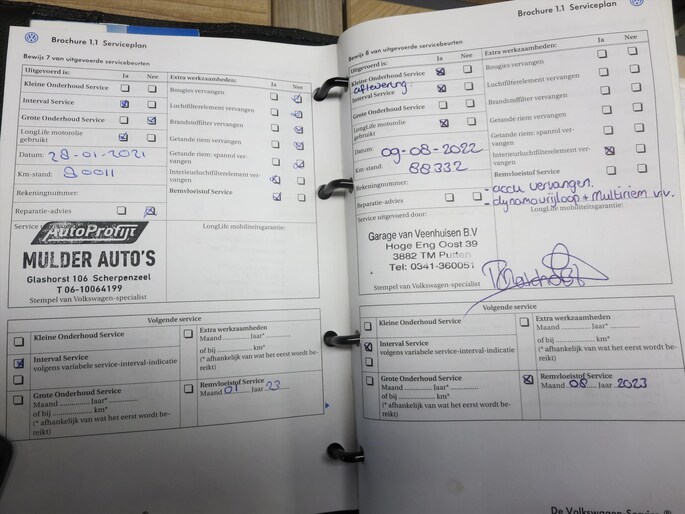 Brochure 1.1 Serviceplan
Bewijs 7 van uitgevoerde servicebeurten
Uitgevoerd is: Ja Nee
Extra werkzaamheden: Ja Nee
Kleine Onderhoud Service
Bougies vervangen
Interval Service
Luchtfilterelement vervangen
Grote Onderhoud Service
Brandstoffilter vervangen
LongLife motorolie
gebruikt
Getande riem vervangen
Datum: 28-01-2021
Getande riem: spanrol ver-
vangen
Km-stand: 80011
Interieurluchtfilterelement ver-
vangen
Rekeningnummer:
Remvloeistof Service
Reparatie-advies
LongLife mobiliteitsgarantie:
AutoProfijt
MULDER AUTO'S
Glashorst 106 Scherpenzeel
T 06-10064199
Stempel van Volkswagen-specialist
Volgende service
Kleine Onderhoud Service
Extra werkzaamheden
Maand Jaar*
of bij km*
(* afhankelijk van wat het eerst wordt be-
reikt)
Interval Service
volgens variabele service-interval-indicatie
Grote Onderhoud Service
Maand Jaar*
of bij km*
(* afhankelijk van wat het eerst wordt be-
reikt)
Remvloeistof Service
Maand 01 Jaar 23
Brochure 1.1 Serviceplan
Bewijs 8 van uitgevoerde servicebeurten
Uitgevoerd is: Ja Nee
Extra werkzaamheden: Ja Nee
Kleine Onderhoud Service
aflevering
Bougies vervangen
Interval Service
Luchtfilterelement vervangen
Grote Onderhoud Service
Brandstoffilter vervangen
LongLife motorolie
gebruikt
Getande riem vervangen
Datum: 09-08-2022
Getande riem: spanrol ver-
vangen
Km-stand: 88332
Interieurluchtfilterelement ver-
vangen
Rekeningnummer:
Remvloeistof Service
Reparatie-advies
- accu vervangen.
- dynamovrijloop + Multiriem v.v.
Service uitgevoerd door:
LongLife mobiliteitsgarantie:
Garage van Veenhuisen B.V
Hoge Eng Oost 39
3882 TM Putten
Tel: 0341-360051
Stempel van Volkswagen-specialist
Volgende service
Kleine Onderhoud Service
Extra werkzaamheden
Maand Jaar*
of bij km*
(* afhankelijk van wat het eerst wordt be-
reikt)
Interval Service
volgens variabele service-interval-indicatie
Grote Onderhoud Service
Maand Jaar*
of bij km*
(* afhankelijk van wat het eerst wordt be-
reikt)
Remvloeistof Service
Maand 08 Jaar 2023
De Volkswagen-Service ®